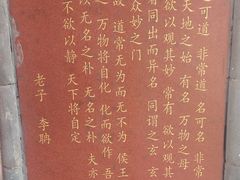 可道 非常道 名可名 非常
天地之始 有名 万物之母
欲以观其妙 常有 欲以观其
者同出而异名 同谓之玄 玄
众妙之门
故 道常无为而无不为 侯王
之 万物将自化 化而欲作 吾
以无名之朴 无名之朴 夫亦
不欲以静 天下将自定
老子 李聃